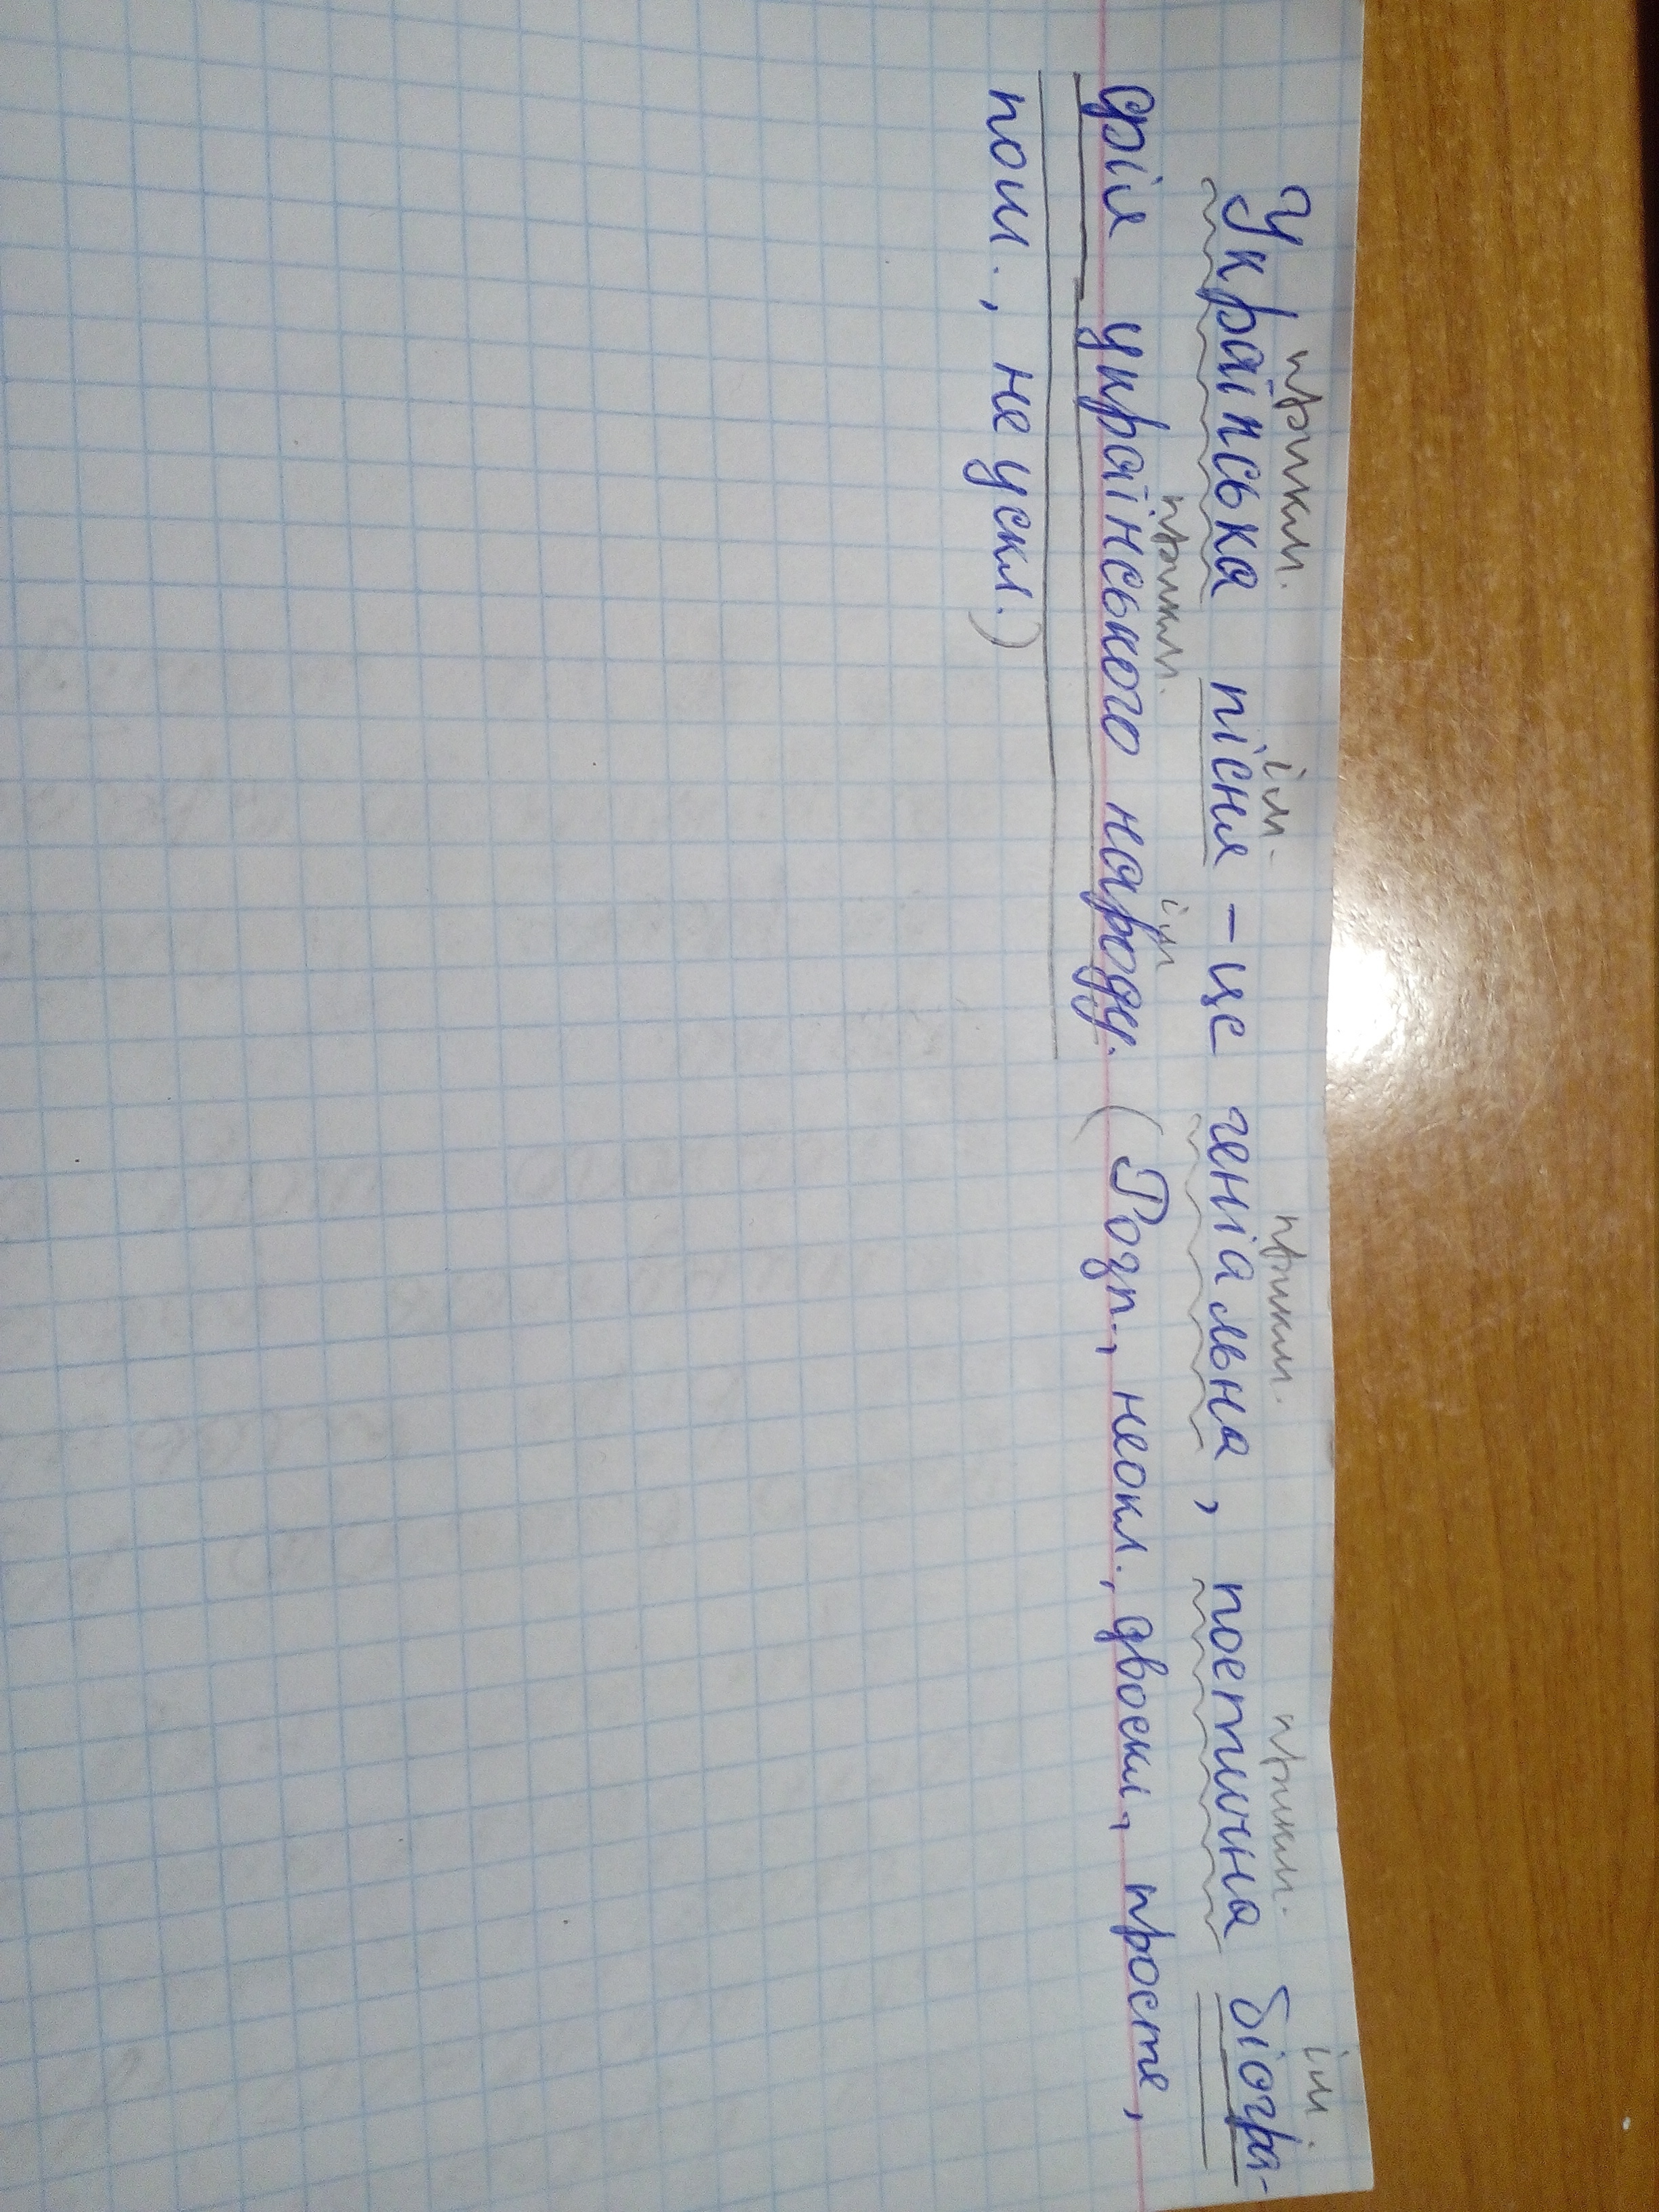 прикм. ім. прикм. прикм. ім
Українська пісня – це геніальна, поетична біогра-
прикм. ім
фія українського народу. (Розп., неокл., двоскл., просте,
пош., не ускл.)